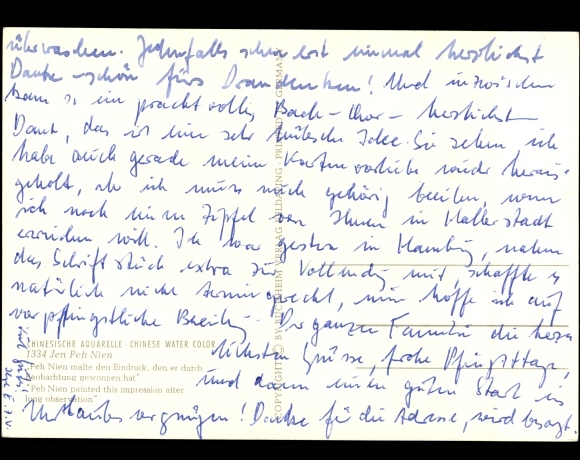 überraschen. Jedenfalls schon erst einmal herzlichst
Danke-schön fürs Drandenken! Und inzwischen
kam so ein prachtvolles Buch - herzlichst
Dank, das ist eine sehr hübsche Idee. Sie sehen, ich
habe auch gerade meine Kartenvorliebe wieder heraus-
geholt, ich muss mich gehörig beeilen, wenn
ich noch einen Zipfel von Ihnen in Hallerstadt
erreichen will. Ich war gestern in Hamburg, nahm
das Schriftstück extra zur Vollendung mit, schaffte es
natürlich nicht termingerecht, nun hoffe ich auf
vorpfingstliche Der ganzen Familie die herz-
lichsten Grüsse, frohe Pfingsttage,
und dann einen guten Start ins
Urlaubsvergnügen! Danke für die Adresse, wird besorgt.
CHINESISCHE AQUARELLE · CHINESE WATER COLOR
1334 Jen Peh Nien
"Peh Nien malte den Eindruck, den er durch
Beobachtung gewonnen hat"
"Peh Nien painted this impression after
long observation"
COPYRIGHT BY VERLAG GERMANY